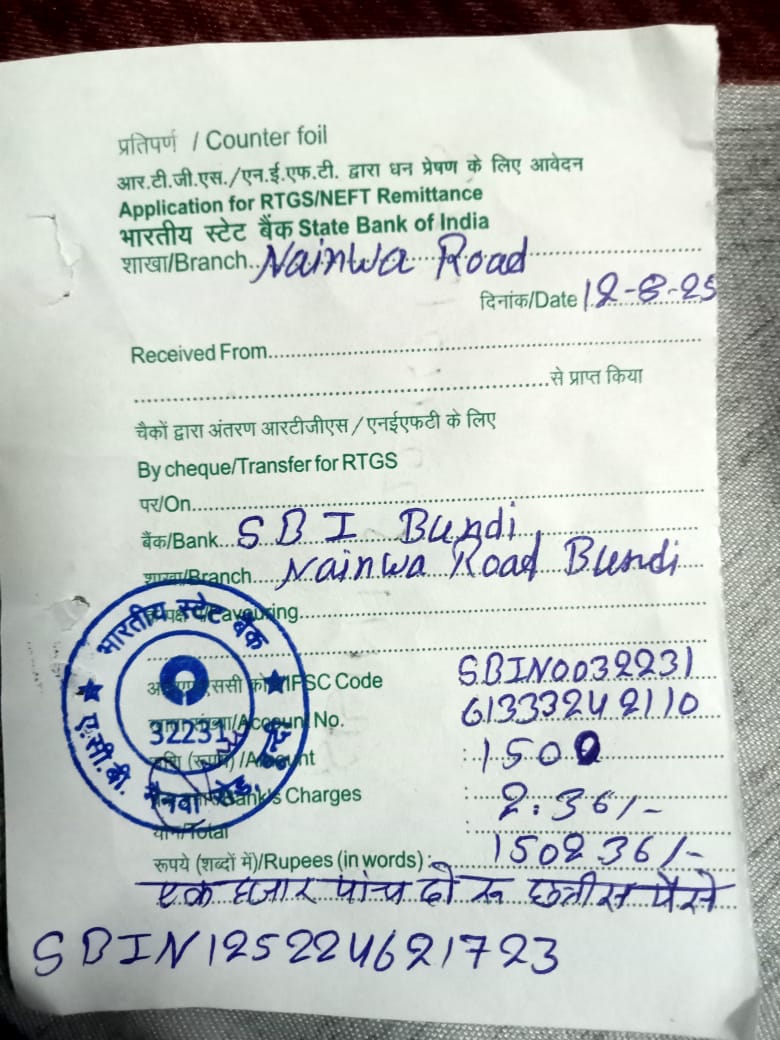 प्रतिपर्ण / Counter foil
आर.टी.जी.एस./एन.ई.एफ.टी. द्वारा धन प्रेषण के लिए आवेदन
Application for RTGS/NEFT Remittance
भारतीय स्टेट बैंक State Bank of India
शाखा/Branch..Nainwa Road
दिनांक/Date 12-8-25
Received From
से प्राप्त किया
चैकों द्वारा अंतरण आरटीजीएस / एनईएफटी के लिए
By cheque/Transfer for RTGS
पर/On
बैंक/Bank SBI Bundi
शाखा/Branch Nainwa Road Bundi
Favouring
भारतीय स्टेट बैंक
IFSC Code SBIN0032231
/Account No. 61333242110
32231
(रूपये) /Amount : 1500
ए.सी.बी. नैनवा रोड,
Bank's Charges : 2:36/-
योग/Total : 150236/-
रूपये (शब्दों में)/Rupees (in words) :
एक हजार पांच दो रू छत्तीस पैसे
SBIN125224621723